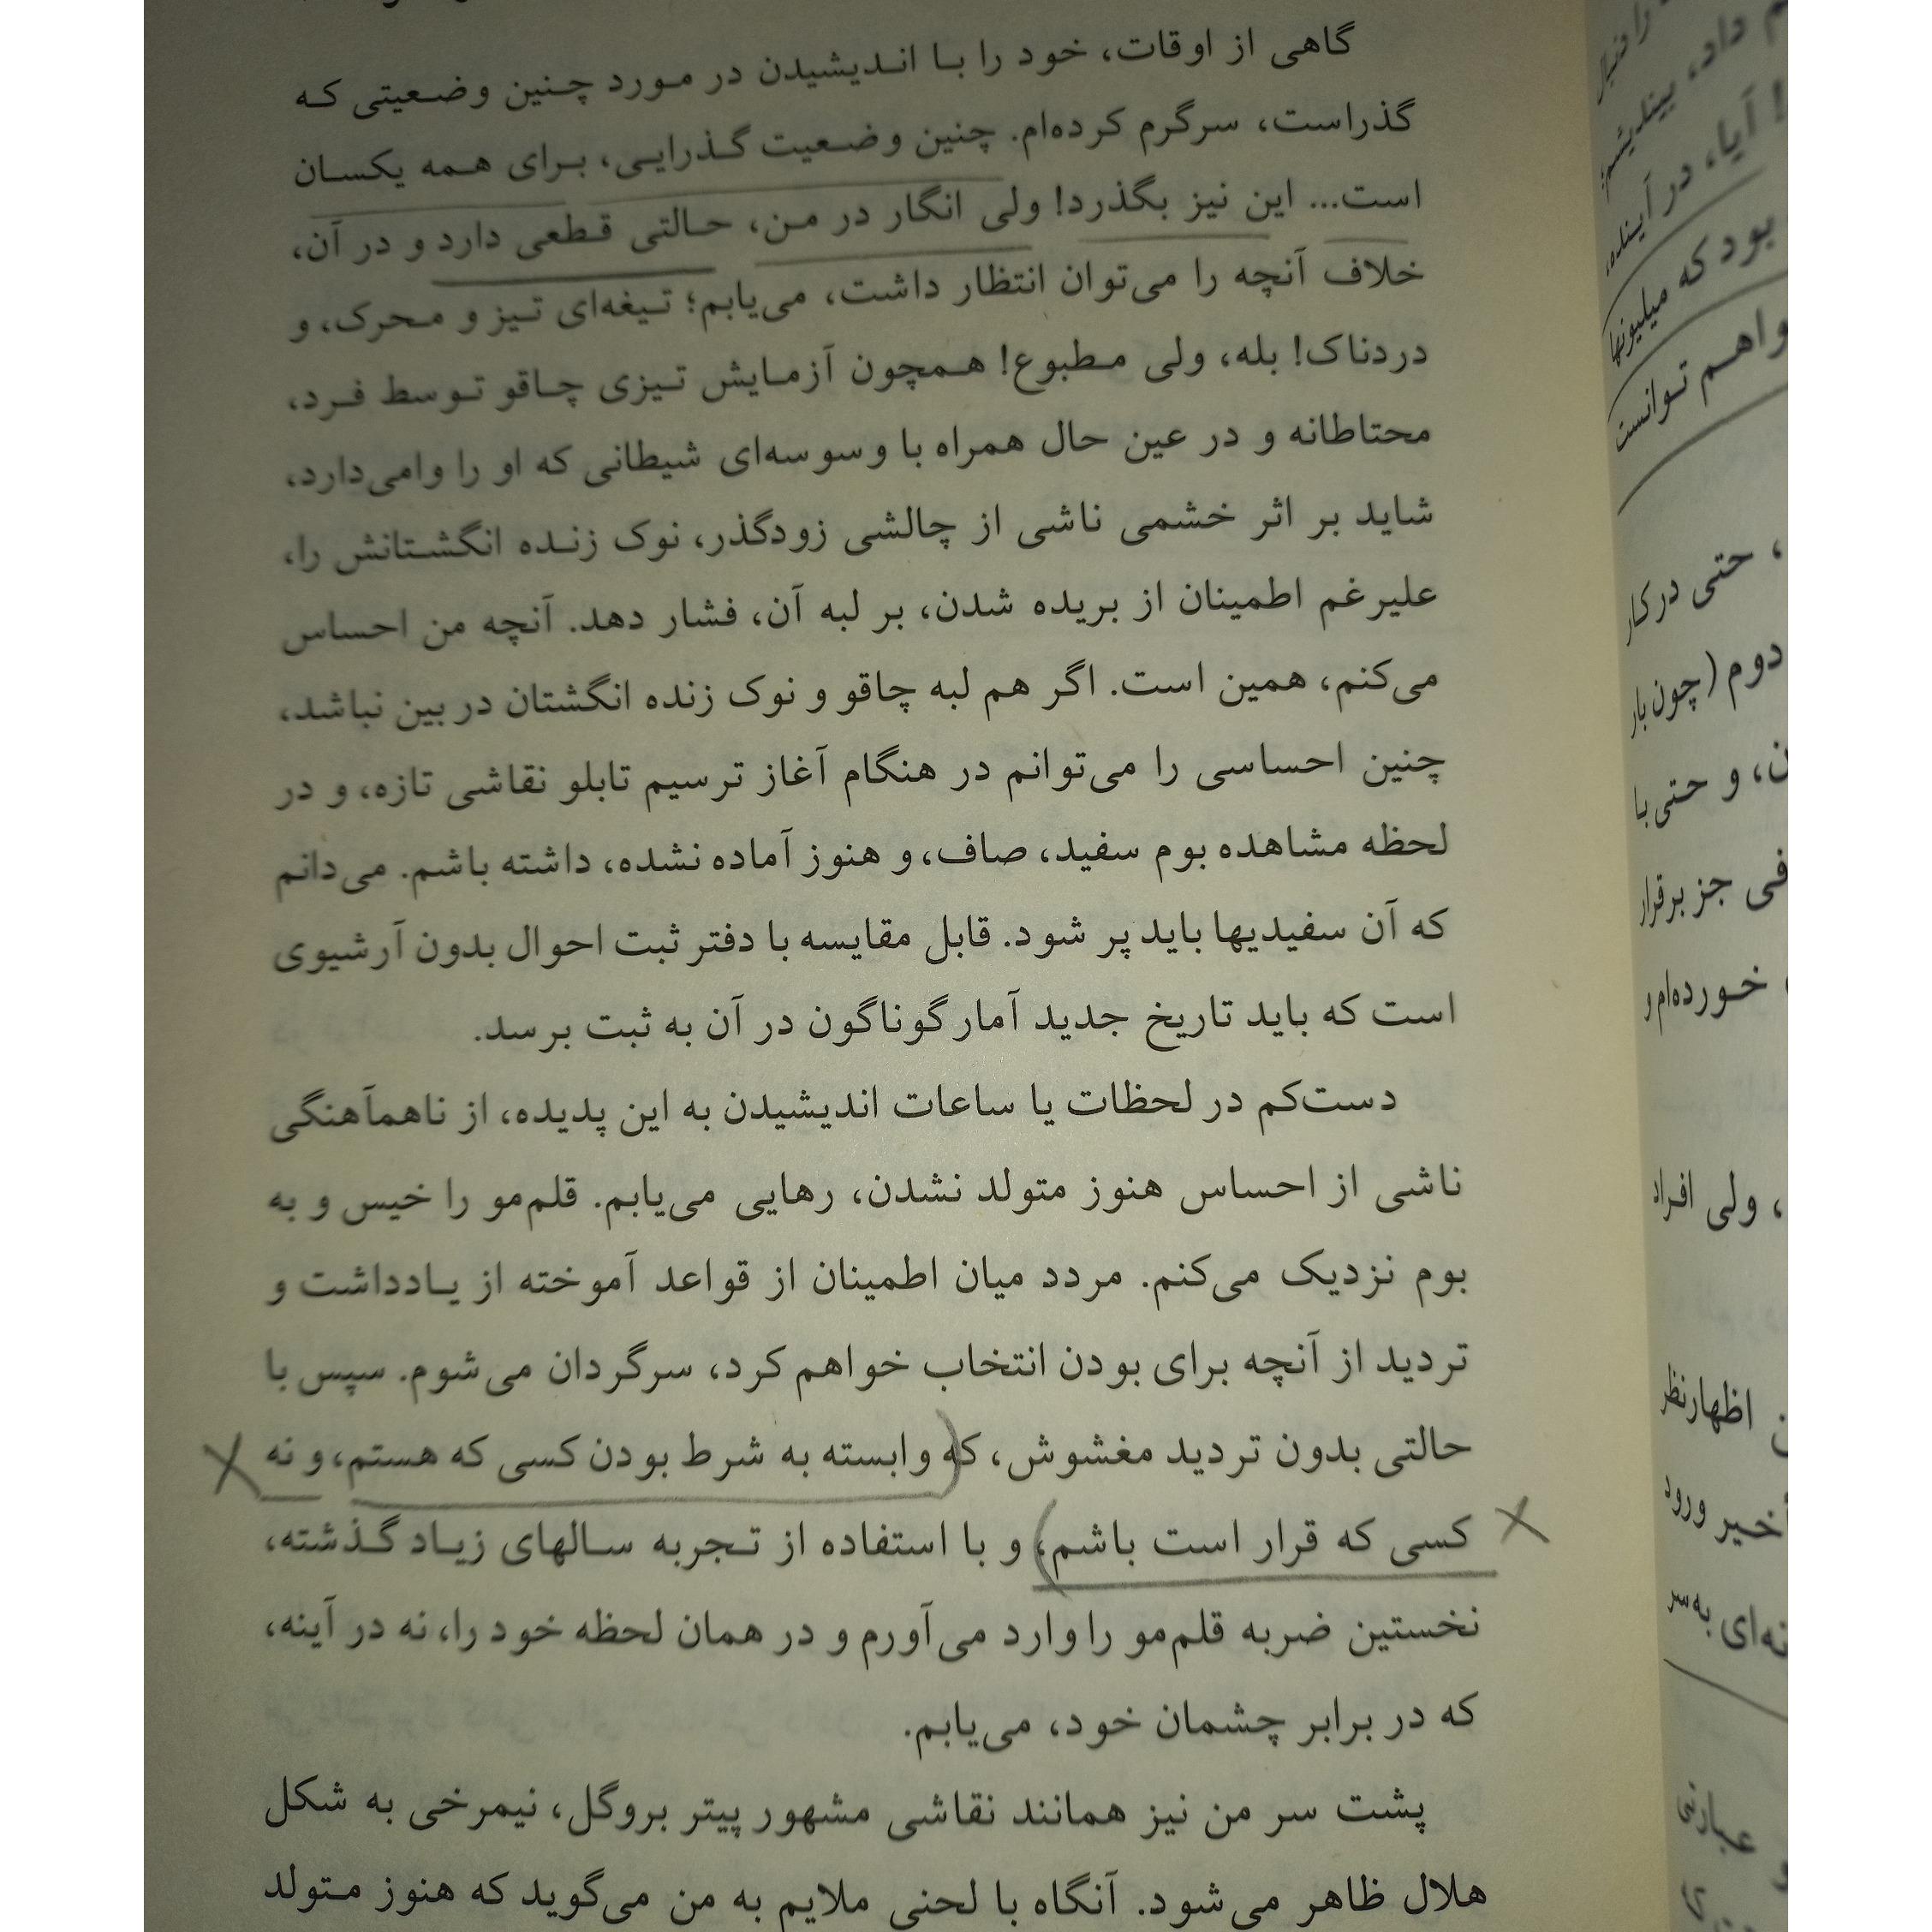 گاهی از اوقات، خود را با اندیشیدن در مورد چنین وضعیتی که
گذراست، سرگرم کرده‌ام. چنین وضعیت گذرایی، برای همه یکسان
است... این نیز بگذرد! ولی انگار در من، حالتی قطعی دارد و در آن،
خلاف آنچه را می‌توان انتظار داشت، می‌یابم؛ تیغه‌ای تیز و محرک، و
دردناک! بله، ولی مطبوع! همچون آزمایش تیزی چاقو توسط فرد،
محتاطانه و در عین حال همراه با وسوسه‌ای شیطانی که او را وامی‌دارد،
شاید بر اثر خشمی ناشی از چالشی زودگذر، نوک زنده انگشتانش را،
علیرغم اطمینان از بریده شدن، بر لبه آن، فشار دهد. آنچه من احساس
می‌کنم، همین است. اگر هم لبه چاقو و نوک زنده انگشتان در بین نباشد،
چنین احساسی را می‌توانم در هنگام آغاز ترسیم تابلو نقاشی تازه، و در
لحظه مشاهده بوم سفید، صاف، و هنوز آماده نشده، داشته باشم. می‌دانم
که آن سفیدیها باید پر شود. قابل مقایسه با دفتر ثبت احوال بدون آرشیوی
است که باید تاریخ جدید آمار گوناگون در آن به ثبت برسد.
دست‌کم در لحظات یا ساعات اندیشیدن به این پدیده، از ناهمآهنگی
ناشی از احساس هنوز متولد نشدن، رهایی می‌یابم. قلم‌مو را خیس و به
بوم نزدیک می‌کنم. مردد میان اطمینان از قواعد آموخته از یادداشت و
تردید از آنچه برای بودن انتخاب خواهم کرد، سرگردان می‌شوم. سپس با
حالتی بدون تردید مغشوش، که وابسته به شرط بودن کسی که هستم، و نه
کسی که قرار است باشم، و با استفاده از تجربه سالهای زیاد گذشته،
نخستین ضربه قلم‌مو را وارد می‌آورم و در همان لحظه خود را، نه در آینه،
که در برابر چشمان خود، می‌یابم.
پشت سر من نیز همانند نقاشی مشهور پیتر بروگل، نیمرخی به شکل
هلال ظاهر می‌شود. آنگاه با لحنی ملایم به من می‌گوید که هنوز متولد
م داد، بیندیشم؛
! آیا، در آینده،
بود که میلیونها
واهم توانست
، حتی در کار
دوم (چون بار
ن، و حتی با
فی جز برقرار
خورده‌ام و
، ولی افراد
اظهارنظر
خیر ورود
نه‌ای به سر
عبارتی